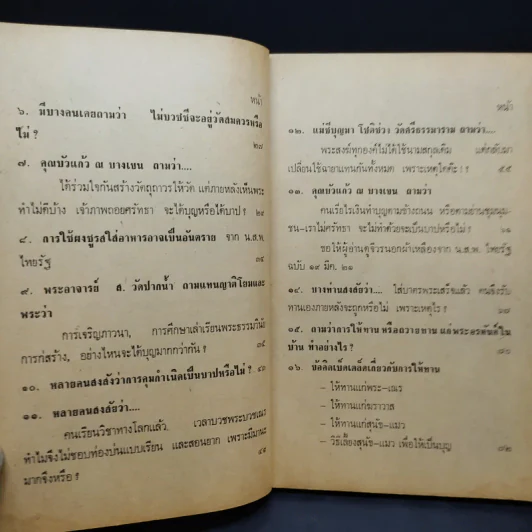 หน้า
๖. มีบางคนเคยถามว่า ไม่บวชชีจะอยู่วัดสมควรหรือ
ไม่ ?
๒๗
๗. คุณบัวแก้ว ณ บางเขน ถามว่า....
ได้ร่วมใจกันสร้างวัตถุถาวรให้วัด แต่ภายหลังเห็นพระ
ทำไม่ดีบ้าง เจ้าภาพถอยศรัทธา จะได้บุญหรือได้บาป ?
๘. การใช้ผงชูรสใส่อาหารอาจเป็นอันตราย จาก น.ส.พ.
ไทยรัฐ
๙. พระอาจารย์ ส. วัดปากน้ำ ถามแทนญาติโยมและ
พระว่า
การเจริญภาวนา, การศึกษาเล่าเรียนพระธรรมวินัย
การก่อสร้าง, อย่างไหนจะได้บุญมากกว่ากัน ?
๑๐. หลายคนสงสัยว่าการคุมกำเนิดเป็นบาปหรือไม่ ?
๑๑. หลายคนสงสัยว่า....
คนเรียนวิชาทางโลกแล้ว, เวลาบวชพระบวชเณร
ทำไมจึงไม่ชอบท่องบ่นแบบเรียน และสอนยาก เพราะมีมานะ
มากจึงหรือ ?
หน้า
๑๒. แม่ชีบุญมา โชติช่วง วัดศรีธรรมาราม ถามว่า....
พระสงฆ์ทุกองค์ไม่ได้ใช้นามสกุลเดิม แต่กลับมา
เปลี่ยนใช้ฉายาแทนกันทั้งหมด เพราะเหตุใดคะ ?
๑๓. คุณบัวแก้ว ณ บางเขน ถามว่า
คนเรี่ยไรเงินทำบุญตามข้างถนน หรือตามย่านชุมนุม-
ชน-เราไม่ศรัทธา จะไม่ทำด้วยจะเป็นบาปหรือไม่ ?
ขอให้ผู้อ่านดูจีวรนอกผ้าเหลืองจาก น.ส.พ. ไทยรัฐ
ฉบับ ๑๙ มีค. ๒๑
๑๔. บางท่านสงสัยว่า.... ใส่บาตรพระเสร็จแล้ว คนจึงรับ
ทานเองภายหลังจะถูกหรือไม่ เพราะเหตุไร ?
๑๕. ถามว่าการให้ทาน หรือถวายทาน แก่พระอรหันต์ใน
บ้าน ทำอย่างไร ?
๑๖. ข้อคิดเบ็ดเตล็ดเกี่ยวกับการให้ทาน
– ให้ทานแก่พระ-เณร
– ให้ทานแก่ฆราวาส
– ให้ทานแก่สุนัข-แมว
– วิธีเลี้ยงสุนัข-แมว เพื่อให้เป็นบุญ